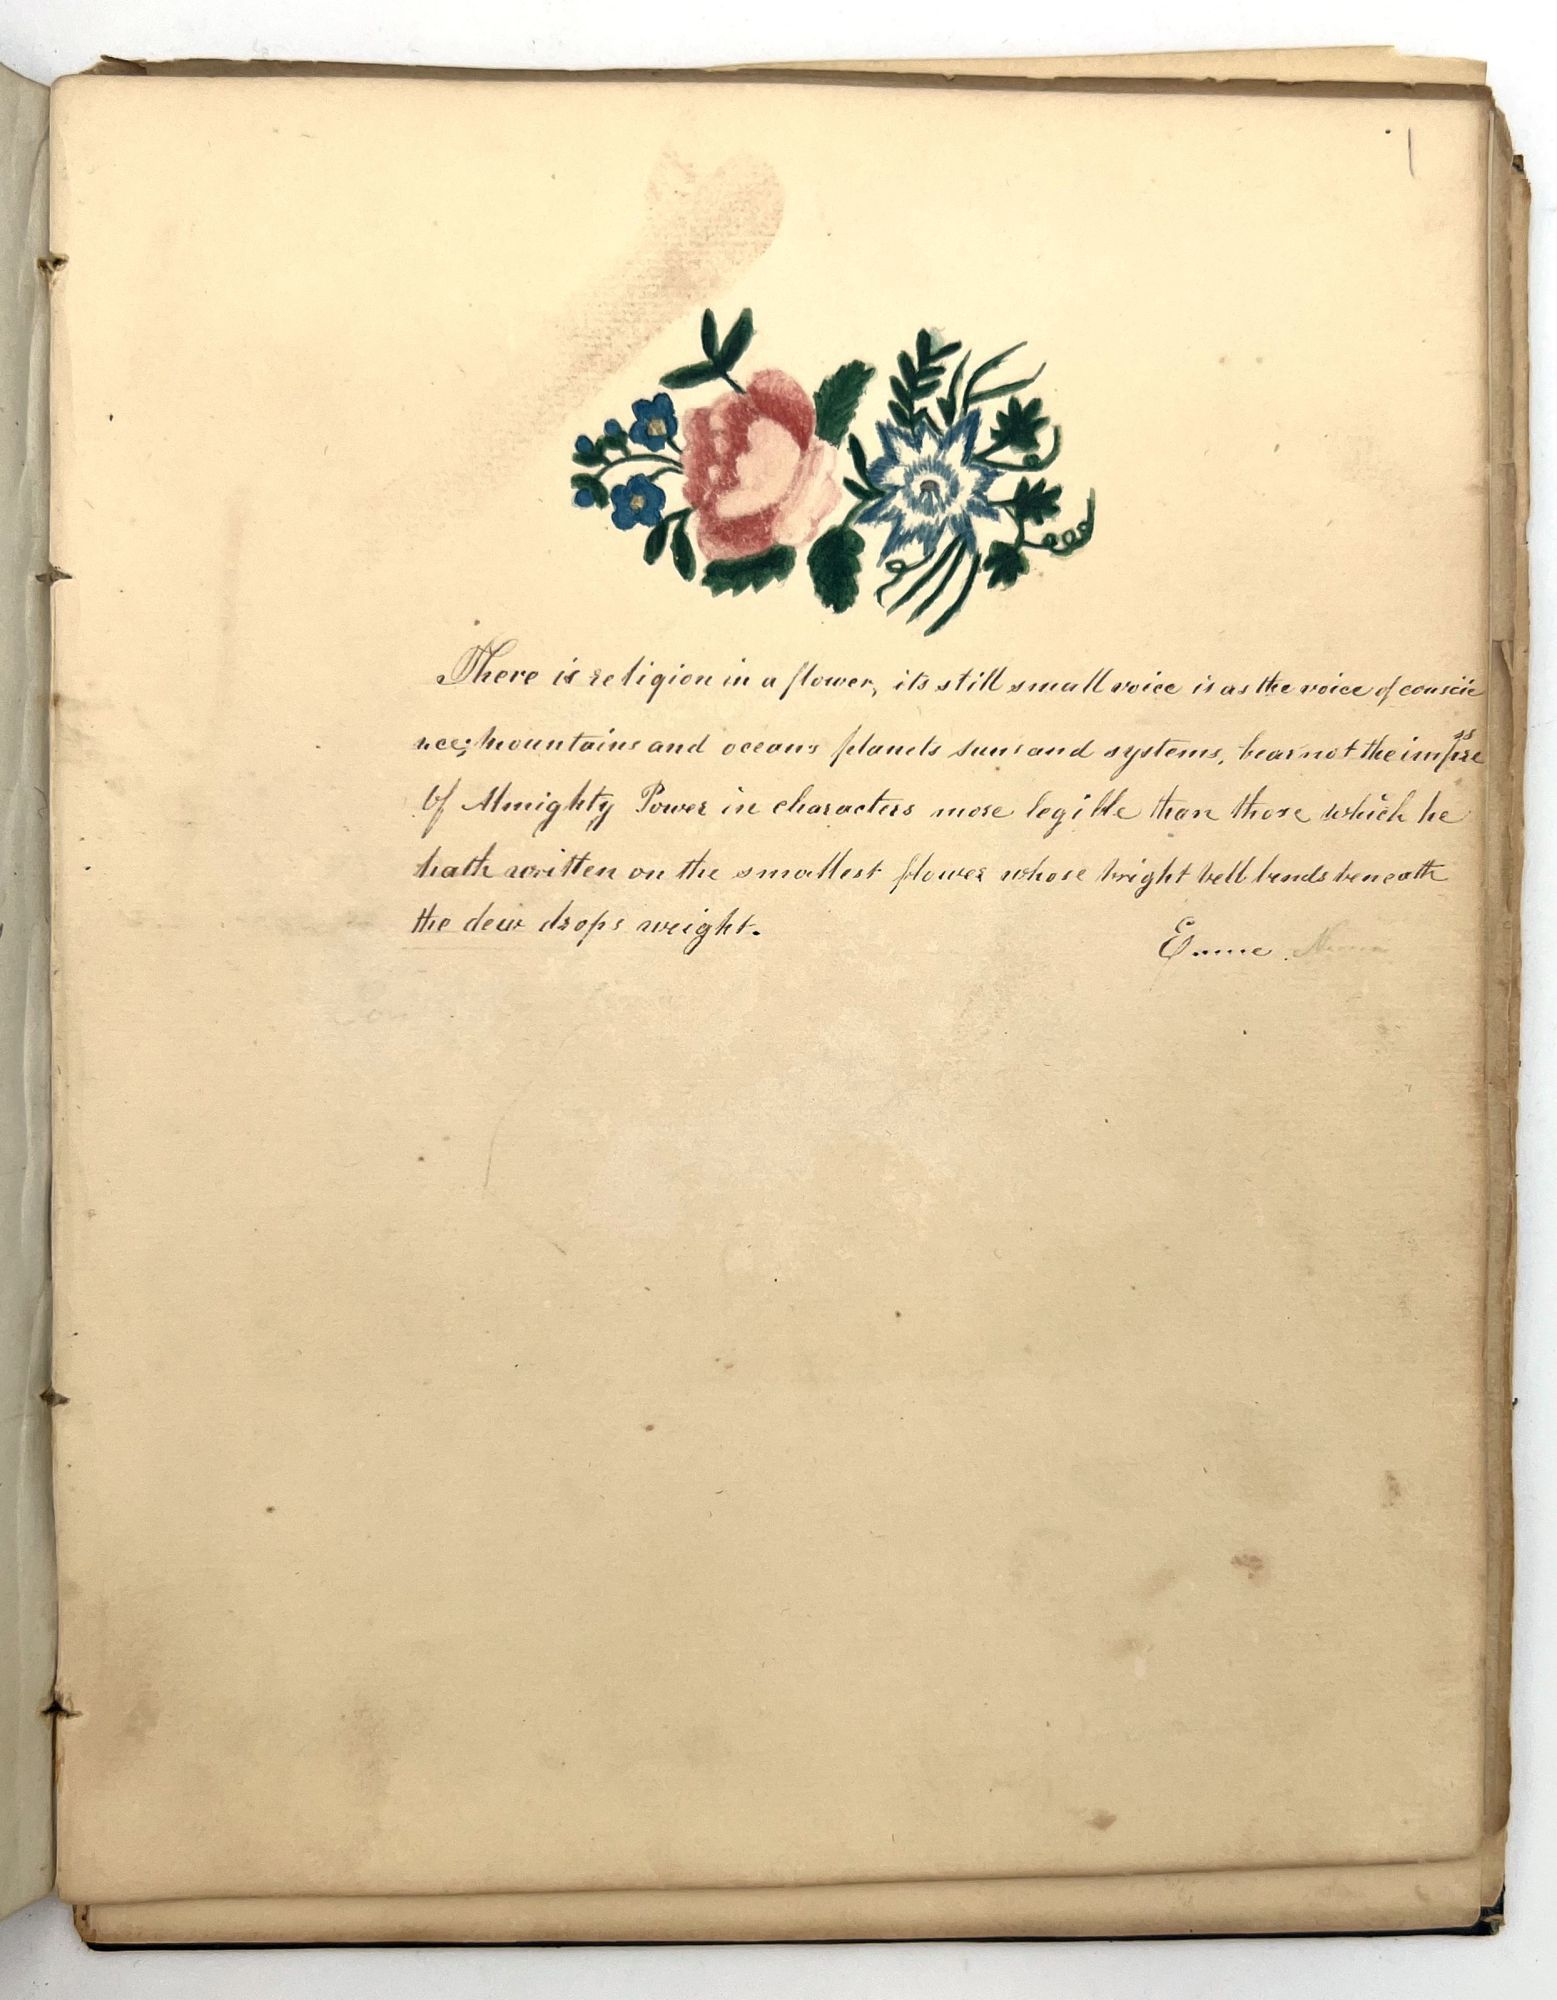 There is religion in a flower, its still small voice is as the voice of conscie
nce; mountains and oceans planets suns and systems, bear not the impress
Of Almighty Power in characters more legible than those which he
hath written on the smallest flower whose bright bell bends beneath
the dew drops weight.